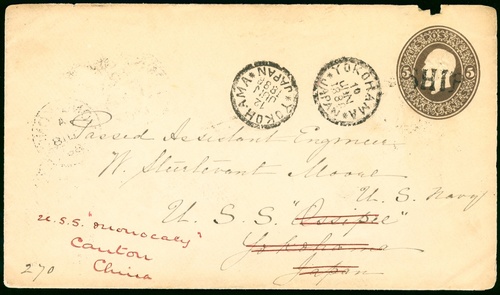 YOKOHAMA JAPAN
YOKOHAMA JAPAN
10 JUN
5 5
SHIP
Passed Assistant Engineer
W. Sturtevant Moore
U. S. Navy
U. S. S. "Ossipee"
Yokohama
Japan
U.S.S. "Monocacy"
Canton
China
270